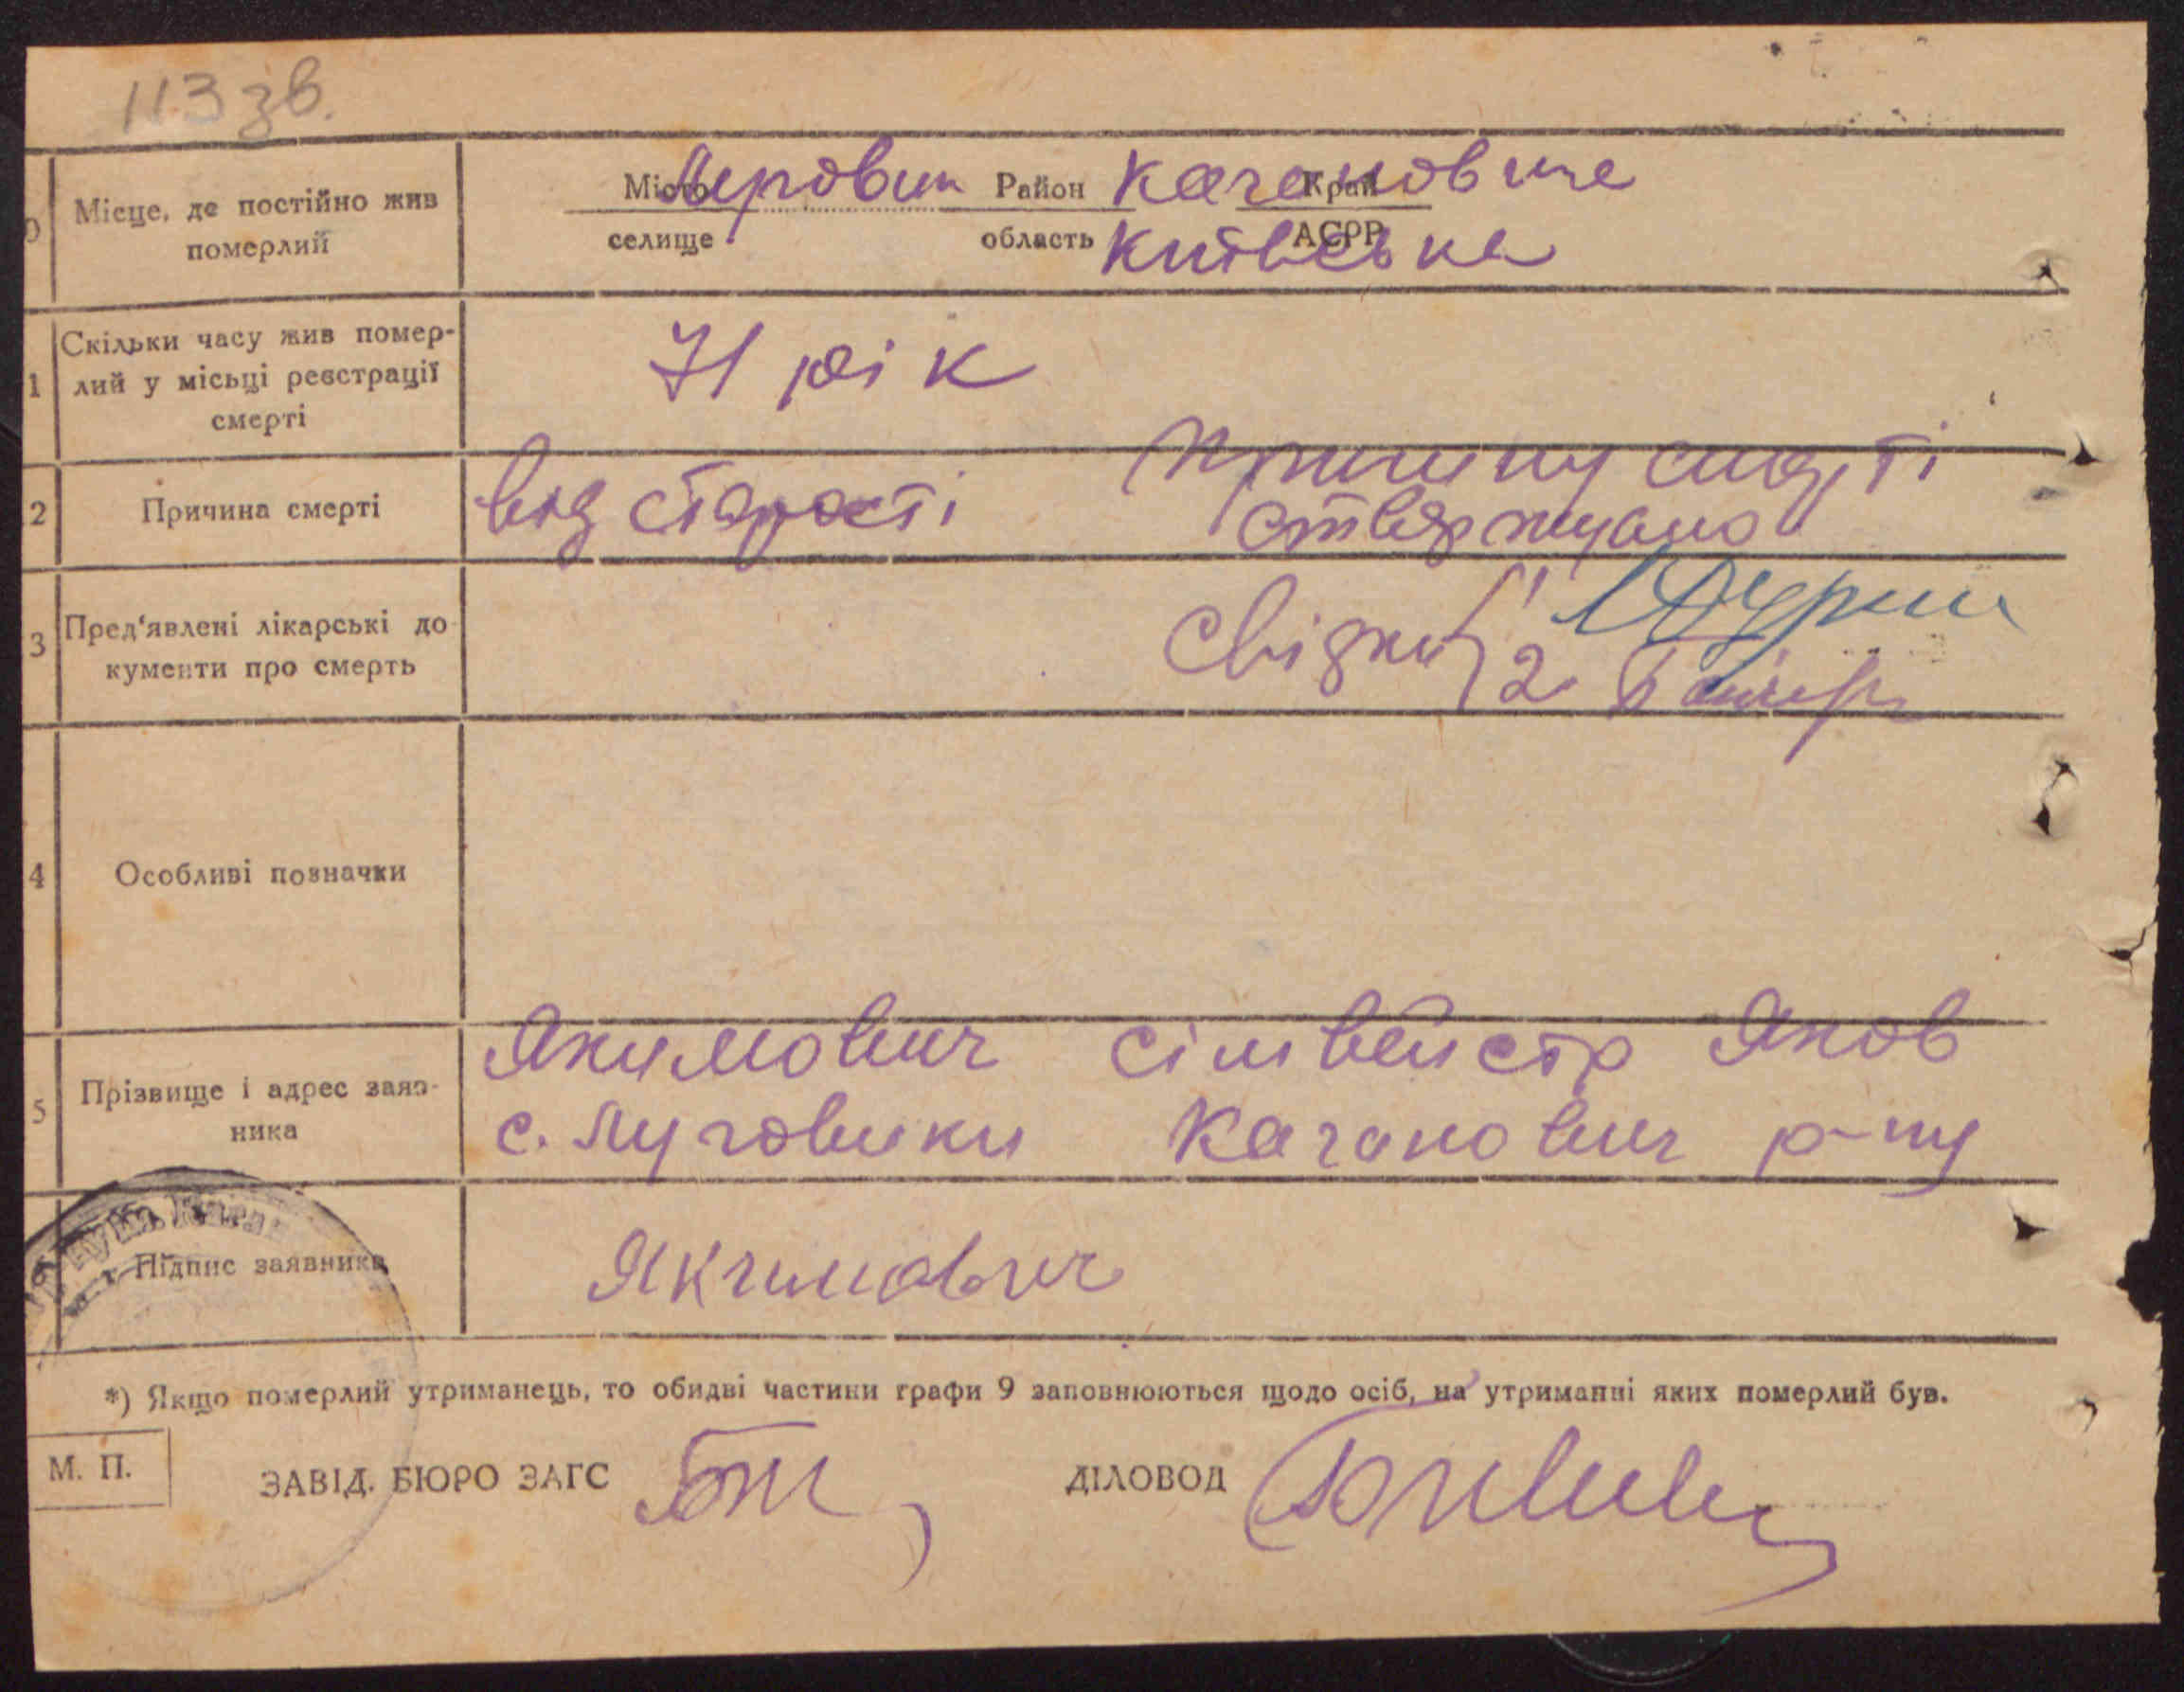 113 зв.
Місце, де постійно жив
померлий
Місто Луговик Район Кагановиче Край
селище область Київська АСРР
1 Скільки часу жив помер-
лий у місьці реєстрації
смерті
71 рік
2 Причина смерті
від старості
Причину смерті
ствержуамо
3 Пред'явлені лікарські до
кументи про смерть
Свідки 1
2
4 Особливі позначки
5 Прізвище і адрес заяв-
ника
Якимович Сільвейстр Яков
с. Луговики Каганович р-ну
Підпис заявника
Якимович
*) Якщо померлий утриманець, то обидві частини графи 9 заповнюються щодо осіб, на утриманні яких померлий був.
М. П.
ЗАВІД. БЮРО ЗАГС
ДІЛОВОД